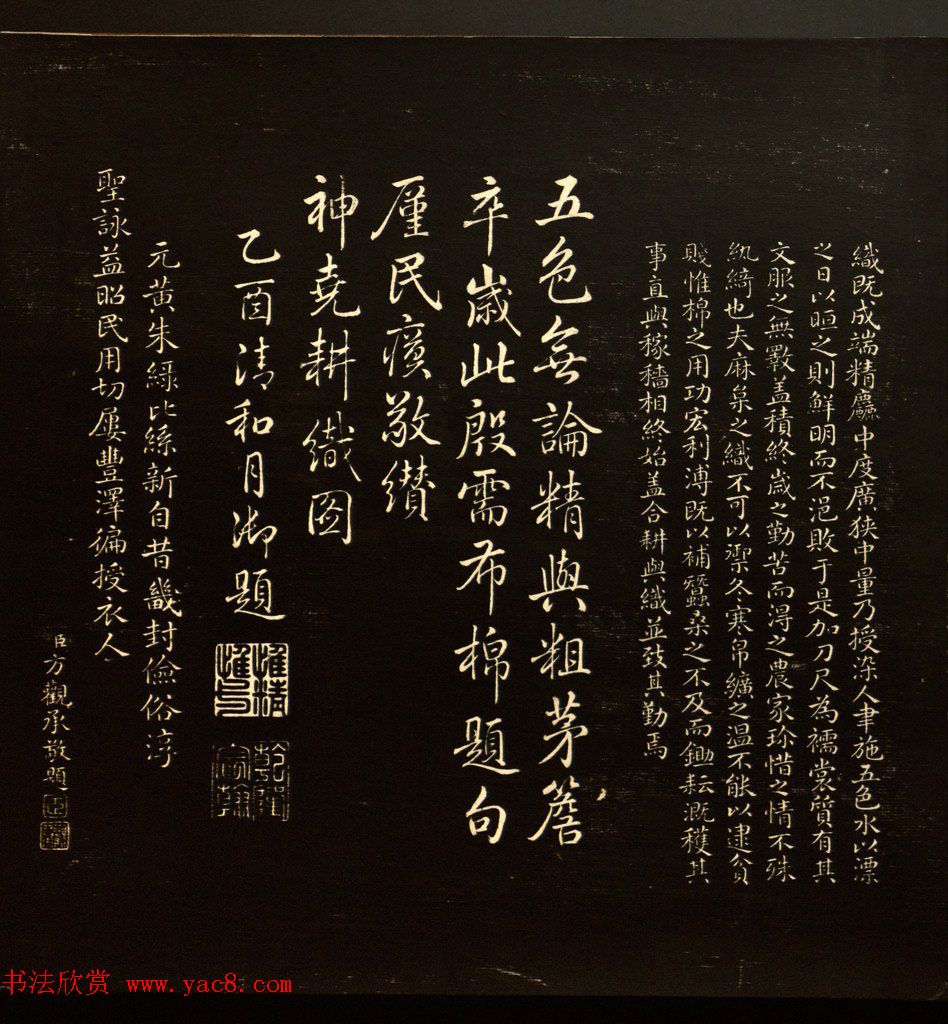 織既成端精麤中度廣狹中量乃授染人聿施五色水以漂
之日以晅之則鮮明而不浥敗于是加刀尺為襦裳質有其
文服之無斁盖積終歲之勤苦而淂之農家珍惜之情不殊
紈綺也夫麻枲之織不可以禦冬寒帛纊之温不能以逮貧
賤惟棉之用功宏利溥既以補蠶桑之不及而鋤耘溉穫其
事直與稼穡相終始盖合耕與織並致其勤焉
五色無論精與粗茅簷
卒歲此殷需布棉題句
厪民瘼敬纘
神堯耕織圖
乙酉清和月御題
惟精惟一
乾隆宸翰
元黃朱綠比絲新自昔畿封儉俗淳
聖詠益昭民用切屢豐澤徧授衣人
臣方觀承敬題
书法欣赏 www.yac8.com